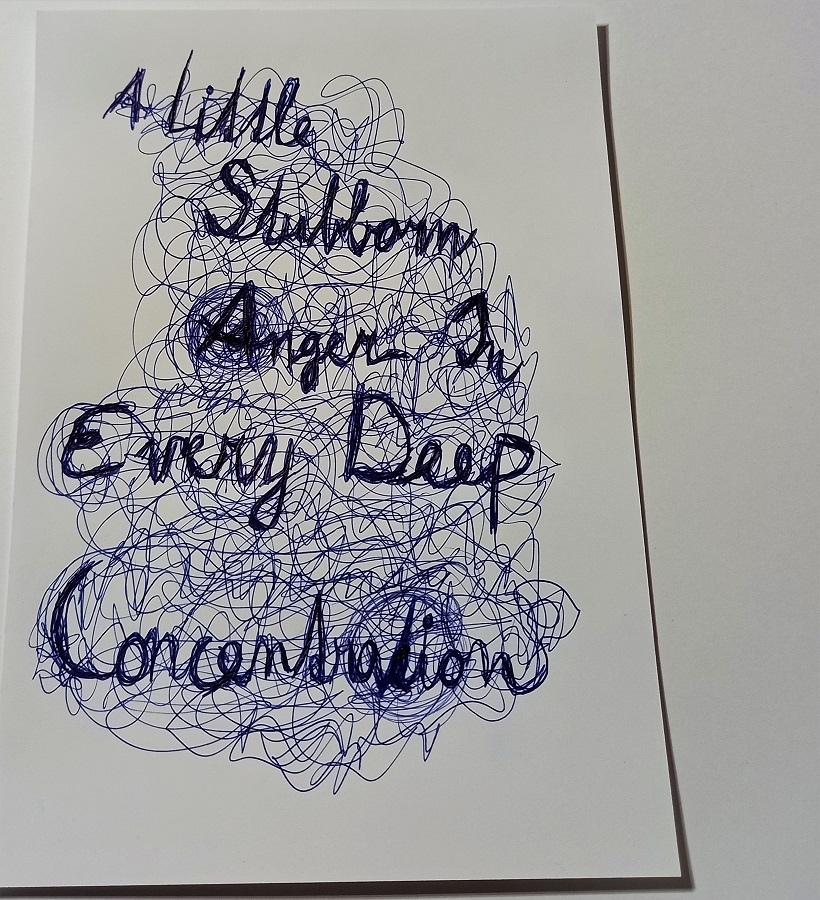 A Little
Stubborn
Anger In
Every Deep
Concentration